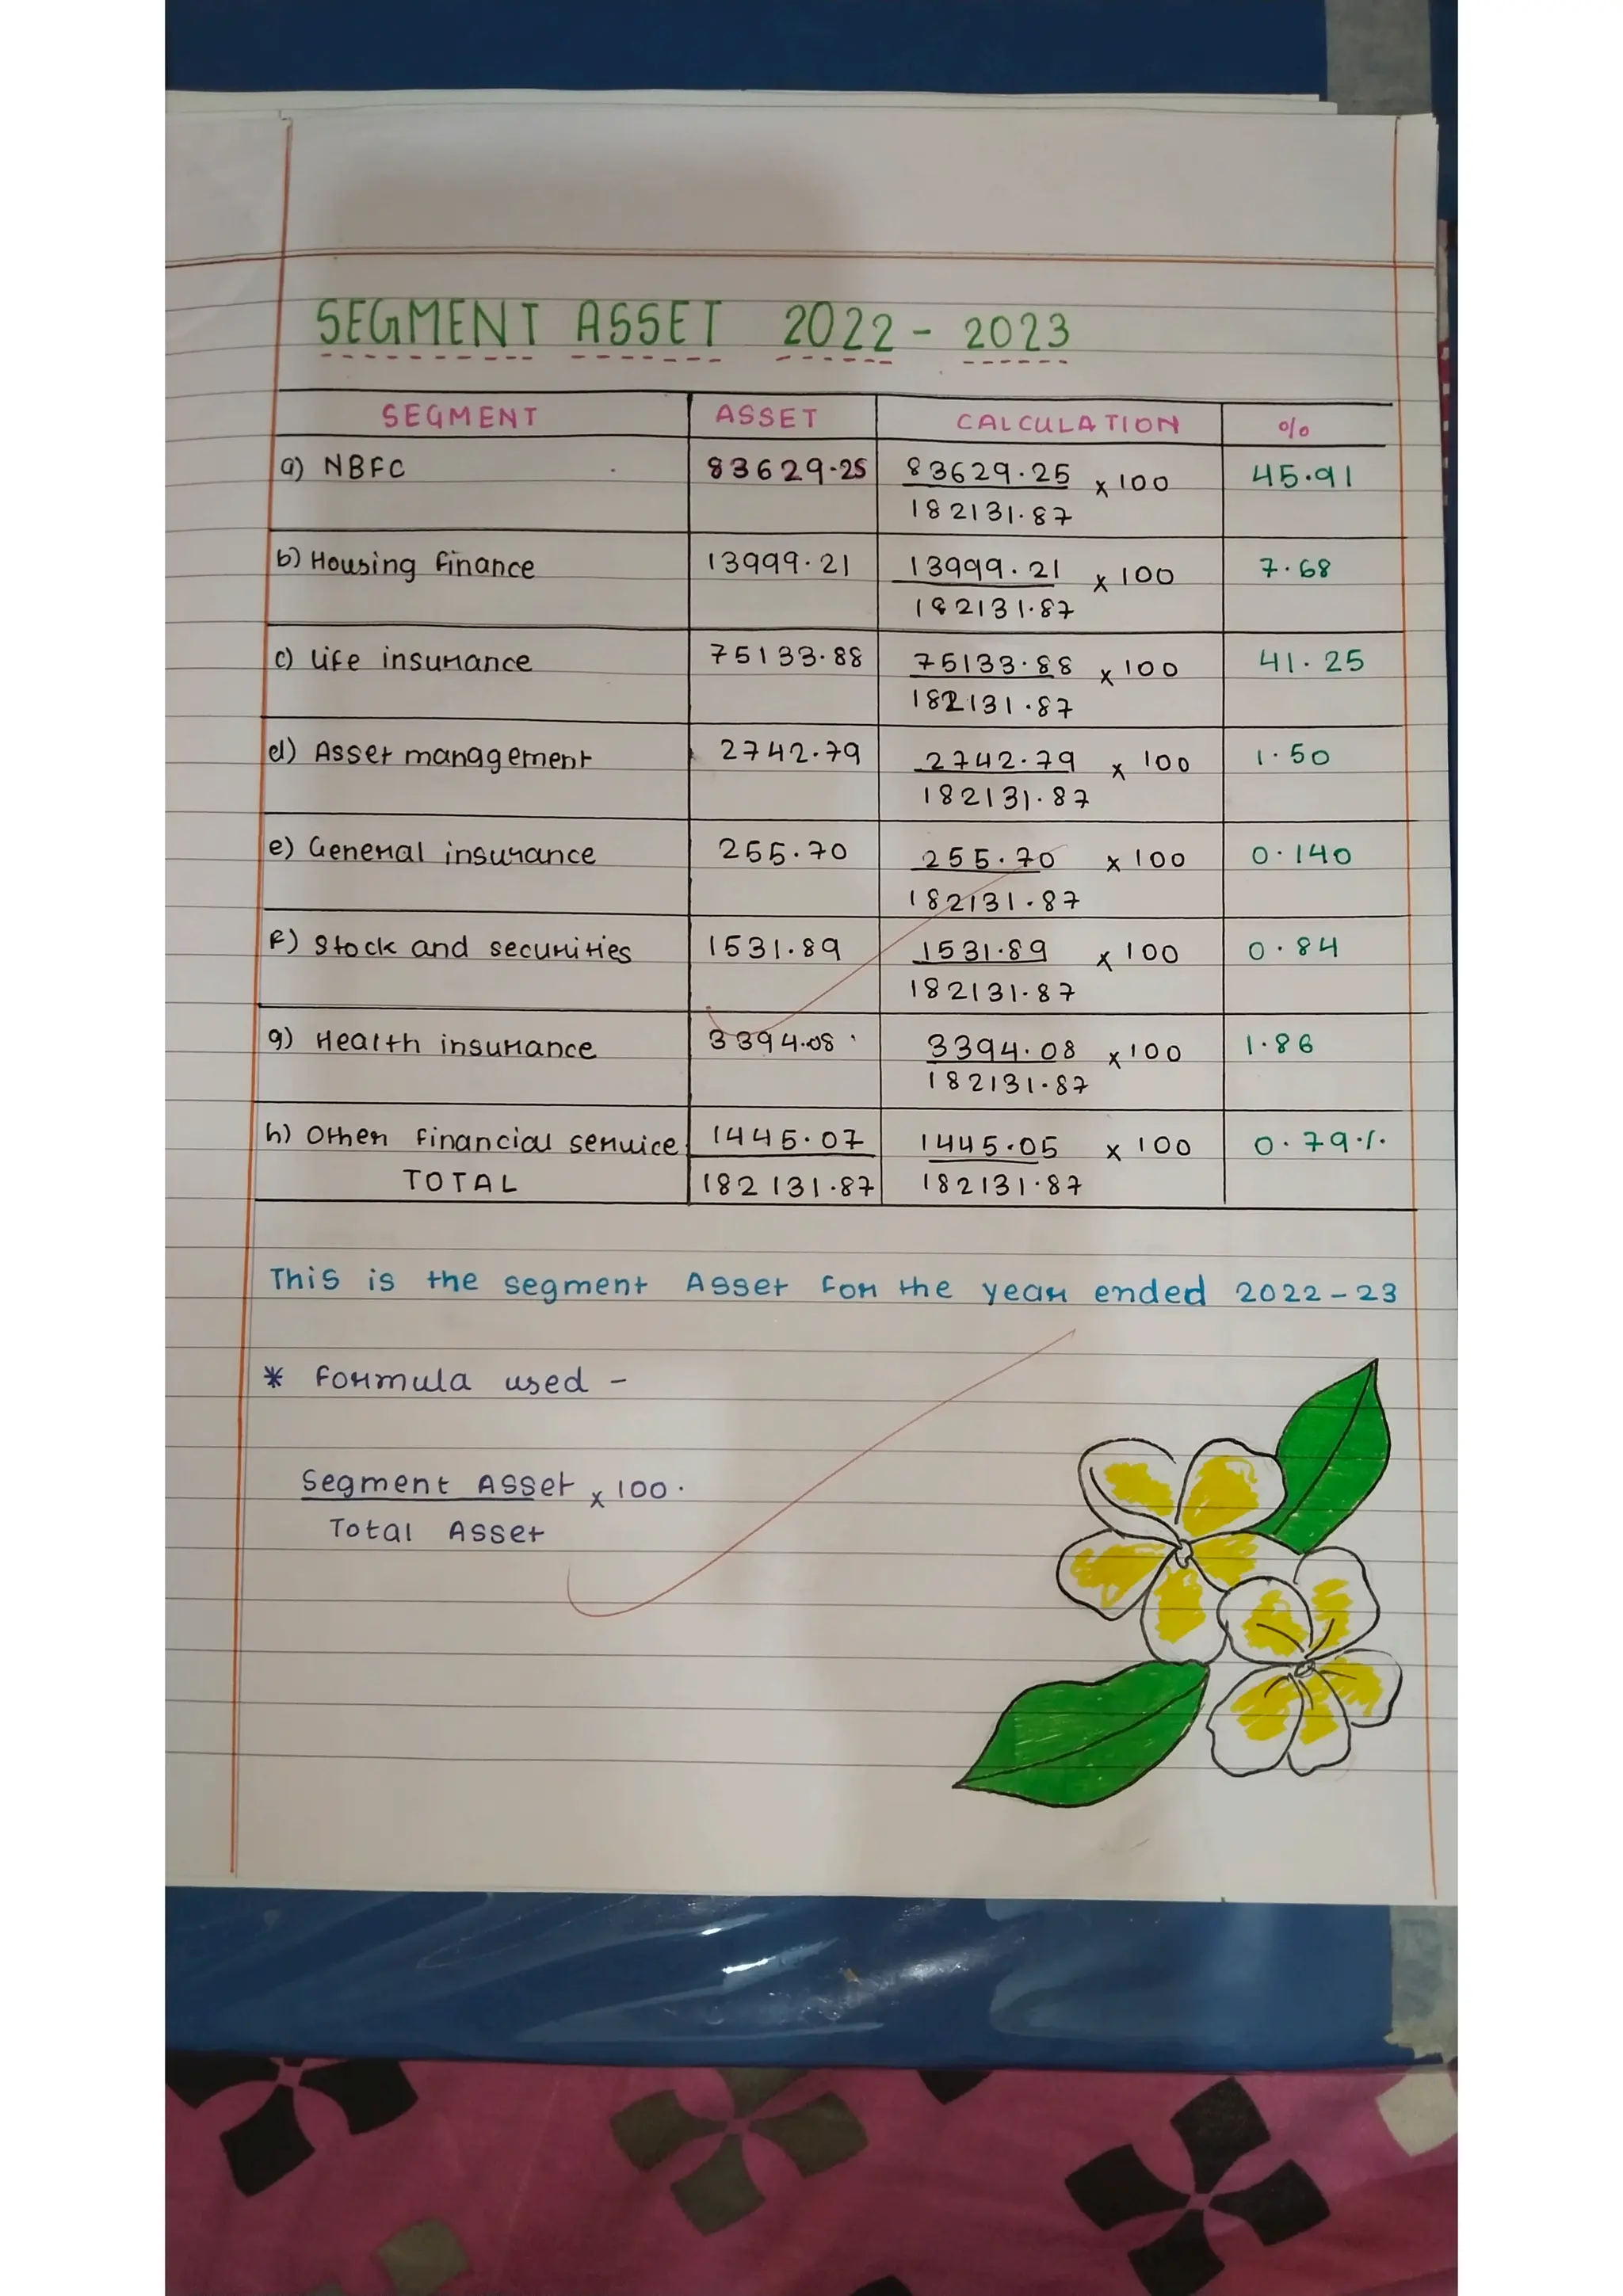 SEGMENT ASSET 2022 - 2023
SEGMENT ASSET CALCULATION %
a) NBFC 83629.25 83629.25 x 100 45.91
182131.87
b) Housing finance 13999.21 13999.21 x 100 7.68
182131.87
c) life insurance 75133.88 75133.88 x 100 41.25
182131.87
d) Asset management 2742.79 2742.79 x 100 1.50
182131.87
e) General insurance 255.70 255.70 x 100 0.140
182131.87
f) Stock and securities 1531.89 1531.89 x 100 0.84
182131.87
g) Health insurance 3394.08 3394.08 x 100 1.86
182131.87
h) Other financial service 1445.07 1445.05 x 100 0.79%
TOTAL 182131.87 182131.87
This is the segment Asset for the year ended 2022-23
* formula used -
Segment Asset x 100.
Total Asset